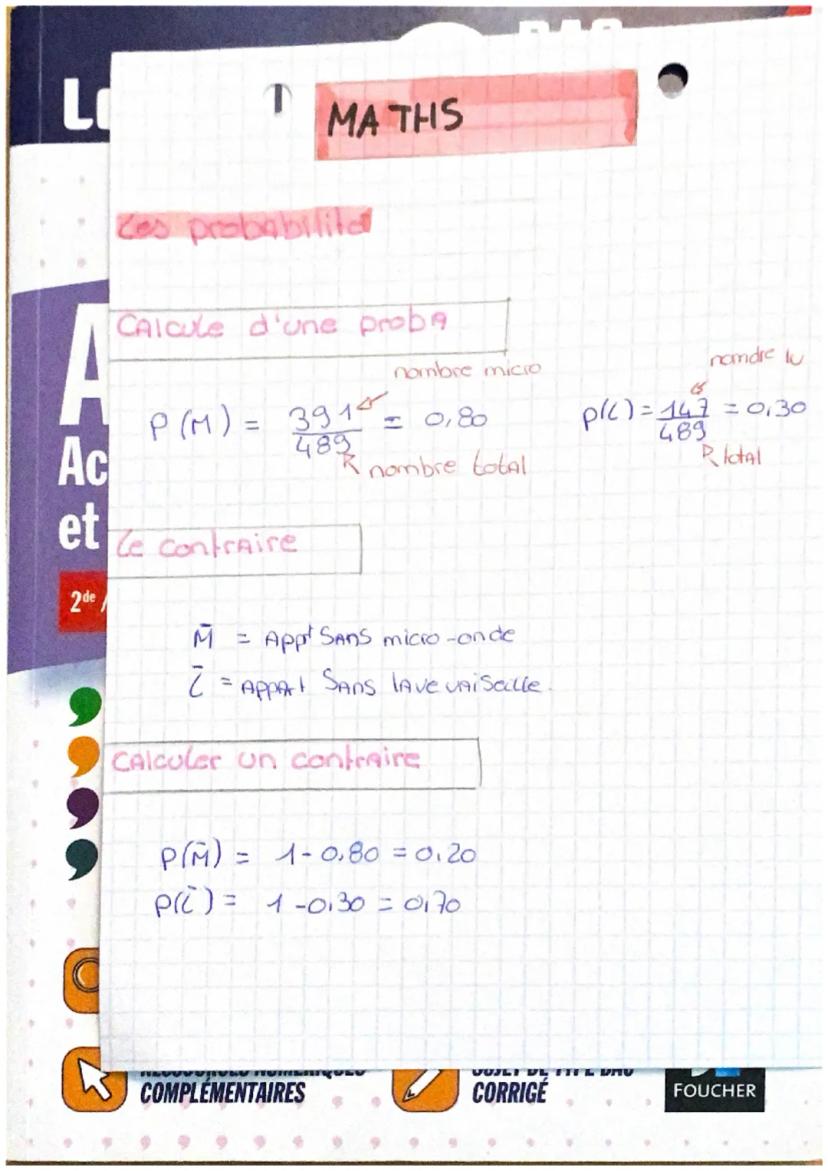 MATHS
Les probabilité
Calcule d'une proba
nombre micro
P(M) = 391/489 = 0,80
nombre total
nomdre lv
P(L) = 147/489 = 0,30
total
Le contraire
M̄ = Appt sans micro-onde
L̄ = Appart sans lave vaiselle.
Calculer un contraire
P(M̄) = 1-0,80 = 0,20
P(L̄) = 1-0,30 = 0,70
Ac
et
2de
COMPLÉMENTAIRES
CORRIGÉ
FOUCHER